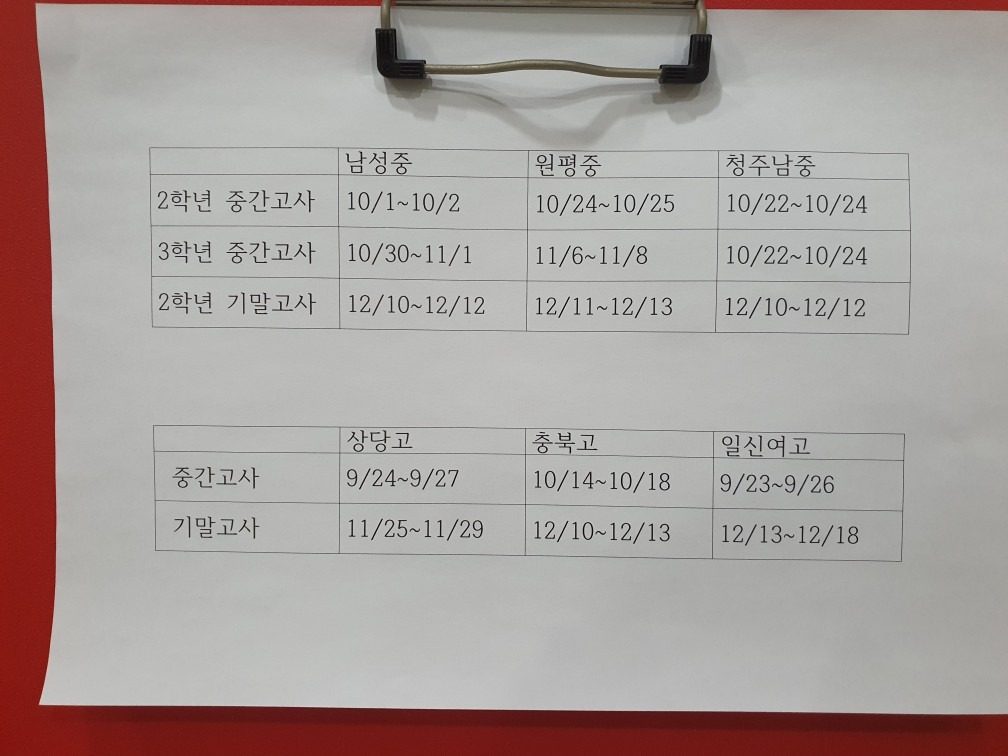 남성중 원평중 청주남중
2학년 중간고사 10/1~10/2 10/24~10/25 10/22~10/24
3학년 중간고사 10/30~11/1 11/6~11/8 10/22~10/24
2학년 기말고사 12/10~12/12 12/11~12/13 12/10~12/12
상당고 충북고 일신여고
중간고사 9/24~9/27 10/14~10/18 9/23~9/26
기말고사 11/25~11/29 12/10~12/13 12/13~12/18